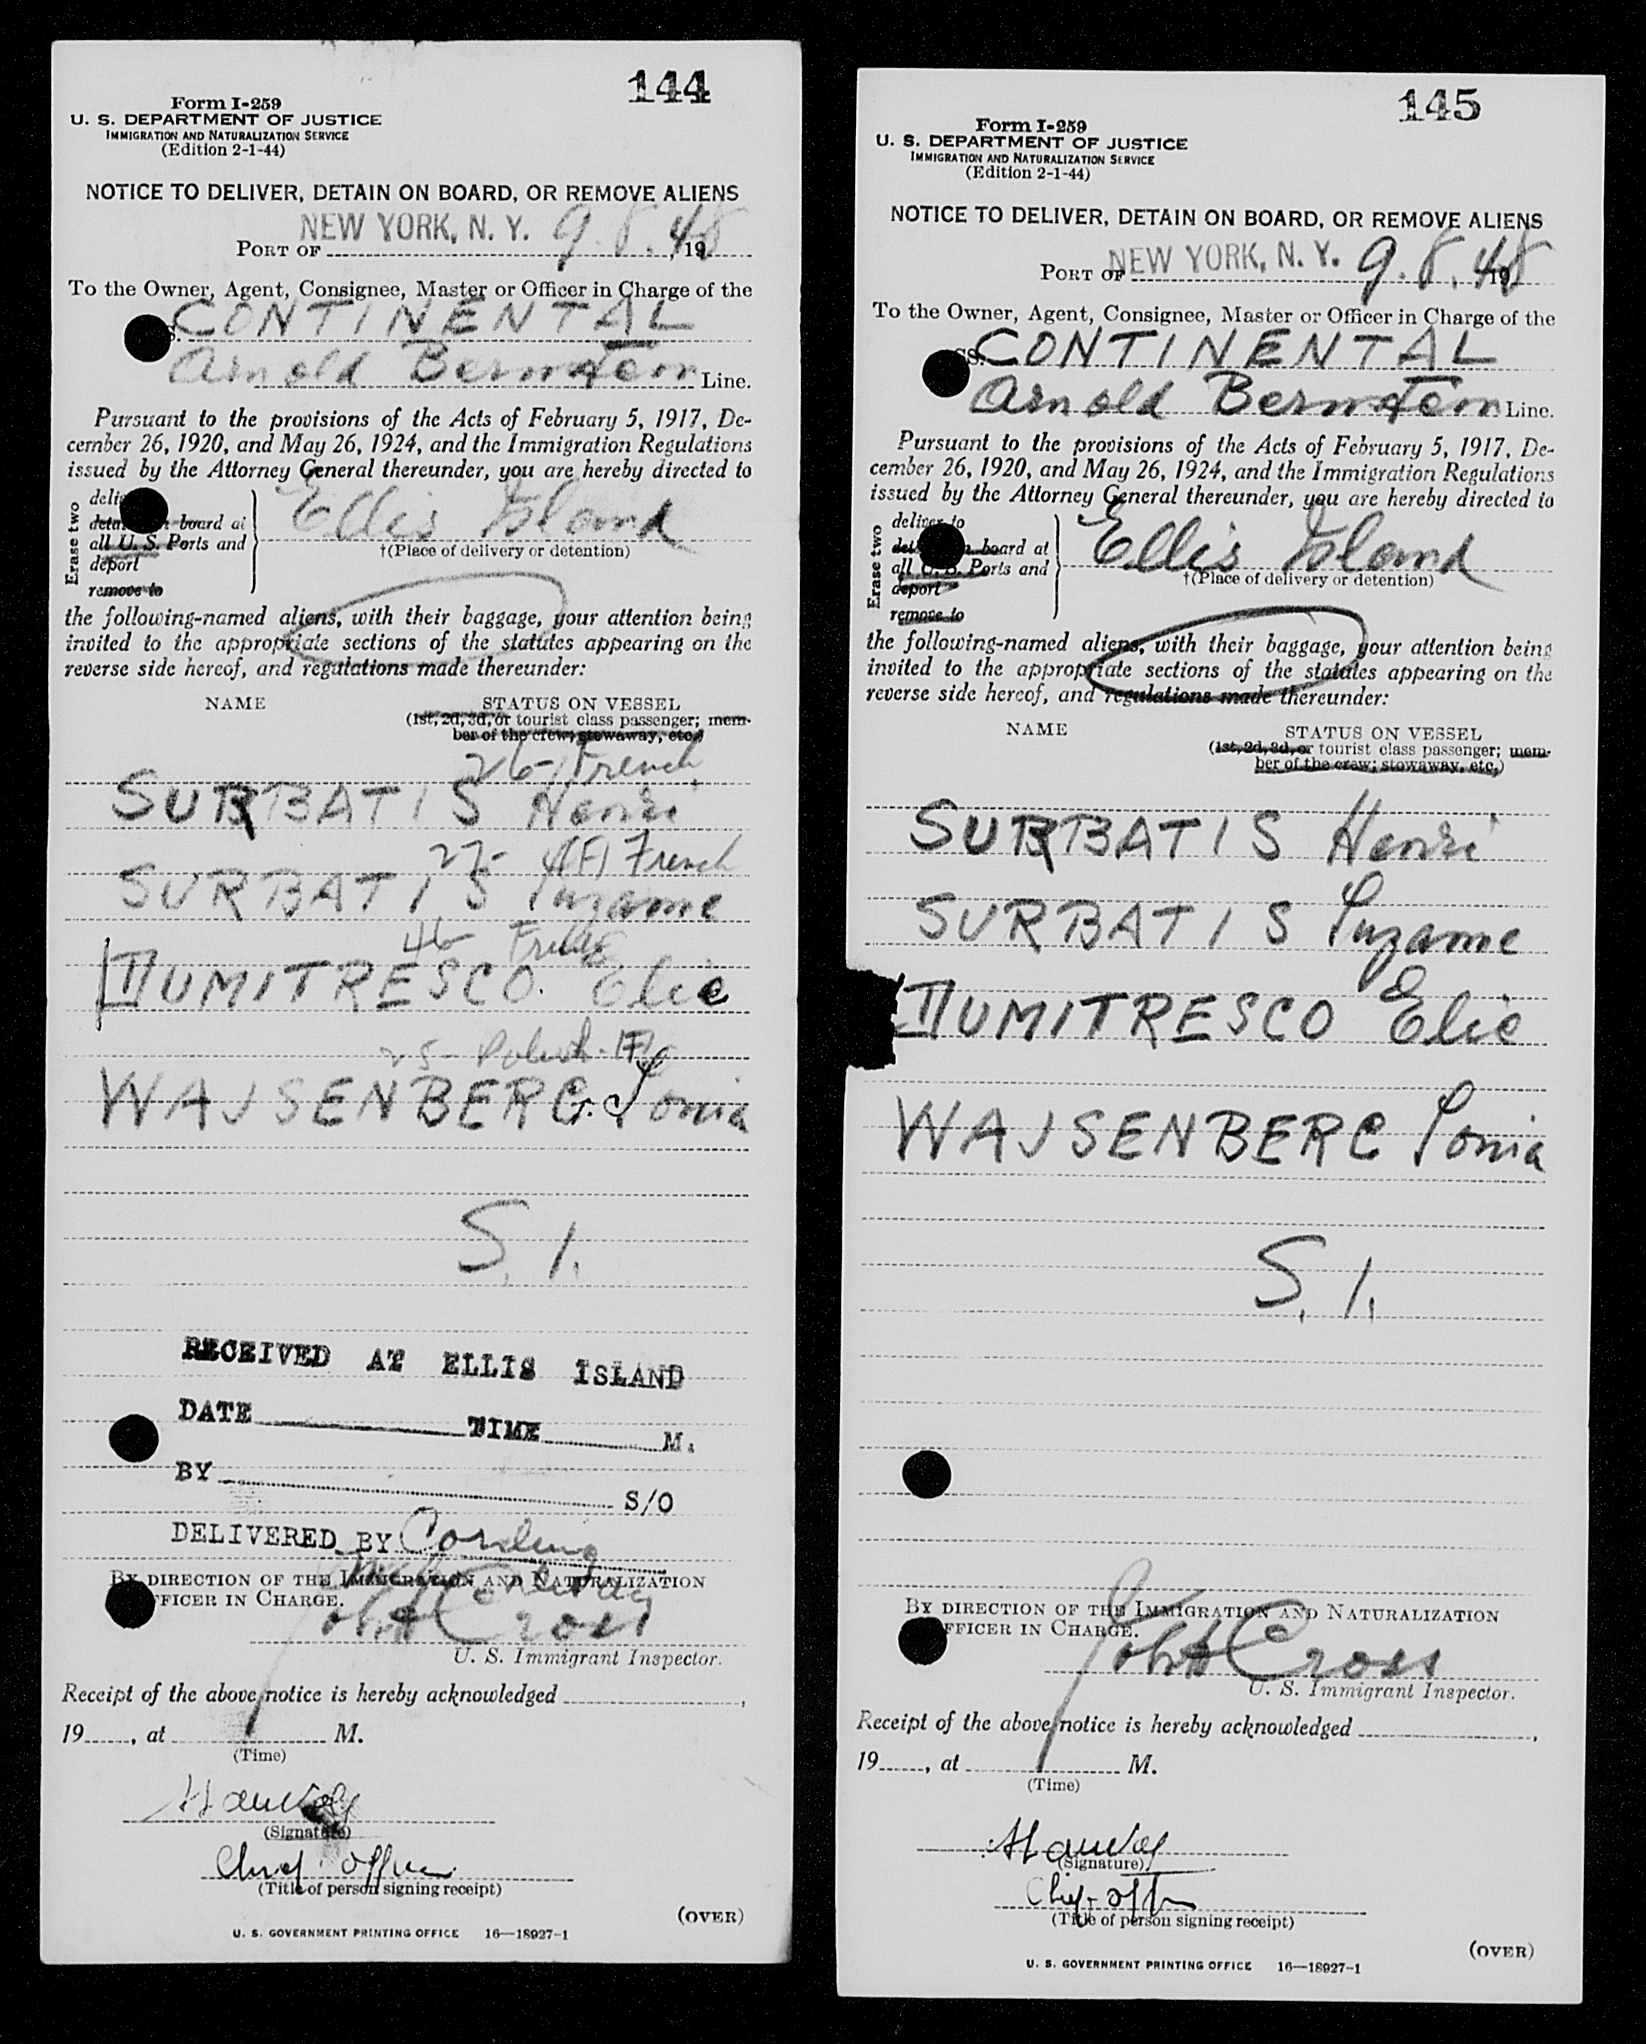 144
Form I-259
U. S. DEPARTMENT OF JUSTICE
IMMIGRATION AND NATURALIZATION SERVICE
(Edition 2-1-44)
NOTICE TO DELIVER, DETAIN ON BOARD, OR REMOVE ALIENS
PORT OF NEW YORK, N. Y. 9.8.48, 19
To the Owner, Agent, Consignee, Master or Officer in Charge of the
CONTINENTAL
Arnold Bernstein Line.
Pursuant to the provisions of the Acts of February 5, 1917, De-
cember 26, 1920, and May 26, 1924, and the Immigration Regulations
issued by the Attorney General thereunder, you are hereby directed to
Erase two
board at
all U. S. Ports and
deport
remove to
Ellis Island
†(Place of delivery or detention)
the following-named aliens, with their baggage, your attention being
invited to the appropriate sections of the statutes appearing on the
reverse side hereof, and regulations made thereunder:
NAME STATUS ON VESSEL
(1st, 2d, 3d, or tourist class passenger; mem-
ber of the crew; stowaway, etc.)
26- French
SURBATIS Henri
27- (F) French
SURBATIS Suzanne
46
DUMITRESCO. Elie
25- Polish (F)
WAJSENBERG. Sonia
S. I.
RECEIVED AT ELLIS ISLAND
DATE TIME M.
BY S/O
DELIVERED BY
BY DIRECTION OF THE IMMIGRATION AND NATURALIZATION
OFFICER IN CHARGE.
John Cross
U. S. Immigrant Inspector.
Receipt of the above notice is hereby acknowledged ,
19 , at M.
(Time)
(Signature)
Chief officer
(Title of person signing receipt)
(OVER)
U. S. GOVERNMENT PRINTING OFFICE 16—18927-1
145
Form I-259
U. S. DEPARTMENT OF JUSTICE
IMMIGRATION AND NATURALIZATION SERVICE
(Edition 2-1-44)
NOTICE TO DELIVER, DETAIN ON BOARD, OR REMOVE ALIENS
PORT OF NEW YORK, N. Y. 9.8.48 19
To the Owner, Agent, Consignee, Master or Officer in Charge of the
SS. CONTINENTAL
Arnold Bernstein Line.
Pursuant to the provisions of the Acts of February 5, 1917, De-
cember 26, 1920, and May 26, 1924, and the Immigration Regulations
issued by the Attorney General thereunder, you are hereby directed to
Erase two
deliver to
board at
all U. S. Ports and
deport
remove to
Ellis Island
†(Place of delivery or detention)
the following-named aliens, with their baggage, your attention being
invited to the appropriate sections of the statutes appearing on the
reverse side hereof, and regulations made thereunder:
NAME STATUS ON VESSEL
(1st, 2d, 3d, or tourist class passenger; mem-
ber of the crew; stowaway, etc.)
SURBATIS Henri
SURBATIS Suzanne
DUMITRESCO Elie
WAJSENBERG Sonia
S. I.
BY DIRECTION OF THE IMMIGRATION AND NATURALIZATION
OFFICER IN CHARGE.
John Cross
U. S. Immigrant Inspector.
Receipt of the above notice is hereby acknowledged ,
19 , at M.
(Time)
(Signature)
Chief off
(Title of person signing receipt)
(OVER)
U. S. GOVERNMENT PRINTING OFFICE 16—18927-1